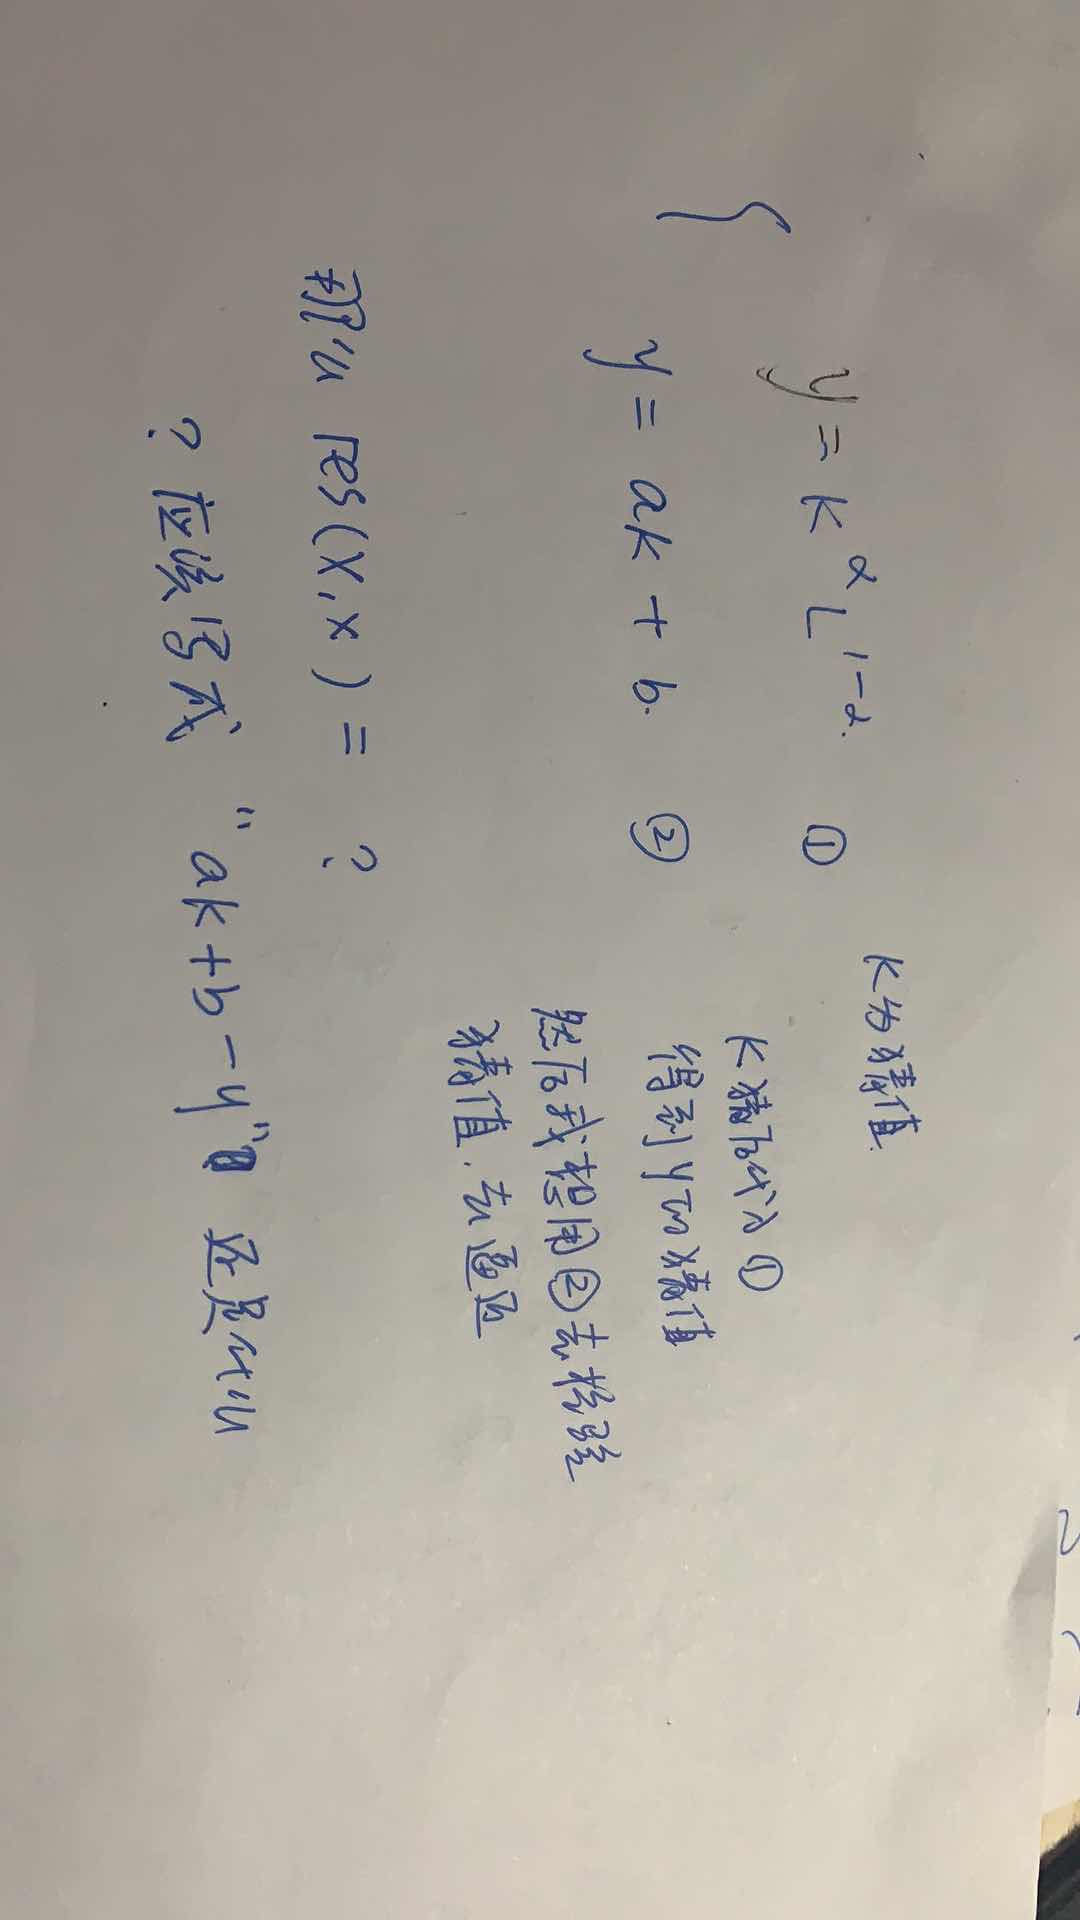 { y = k^α L^{1-α}. ①
y = ak + b. ②
K为猜值
K猜后代入①
得到y的猜值
然后我想用②去检验
猜值.去逼近
那么 res(x,x) = ?
? 应该写成 "ak+b-y" 还是什么